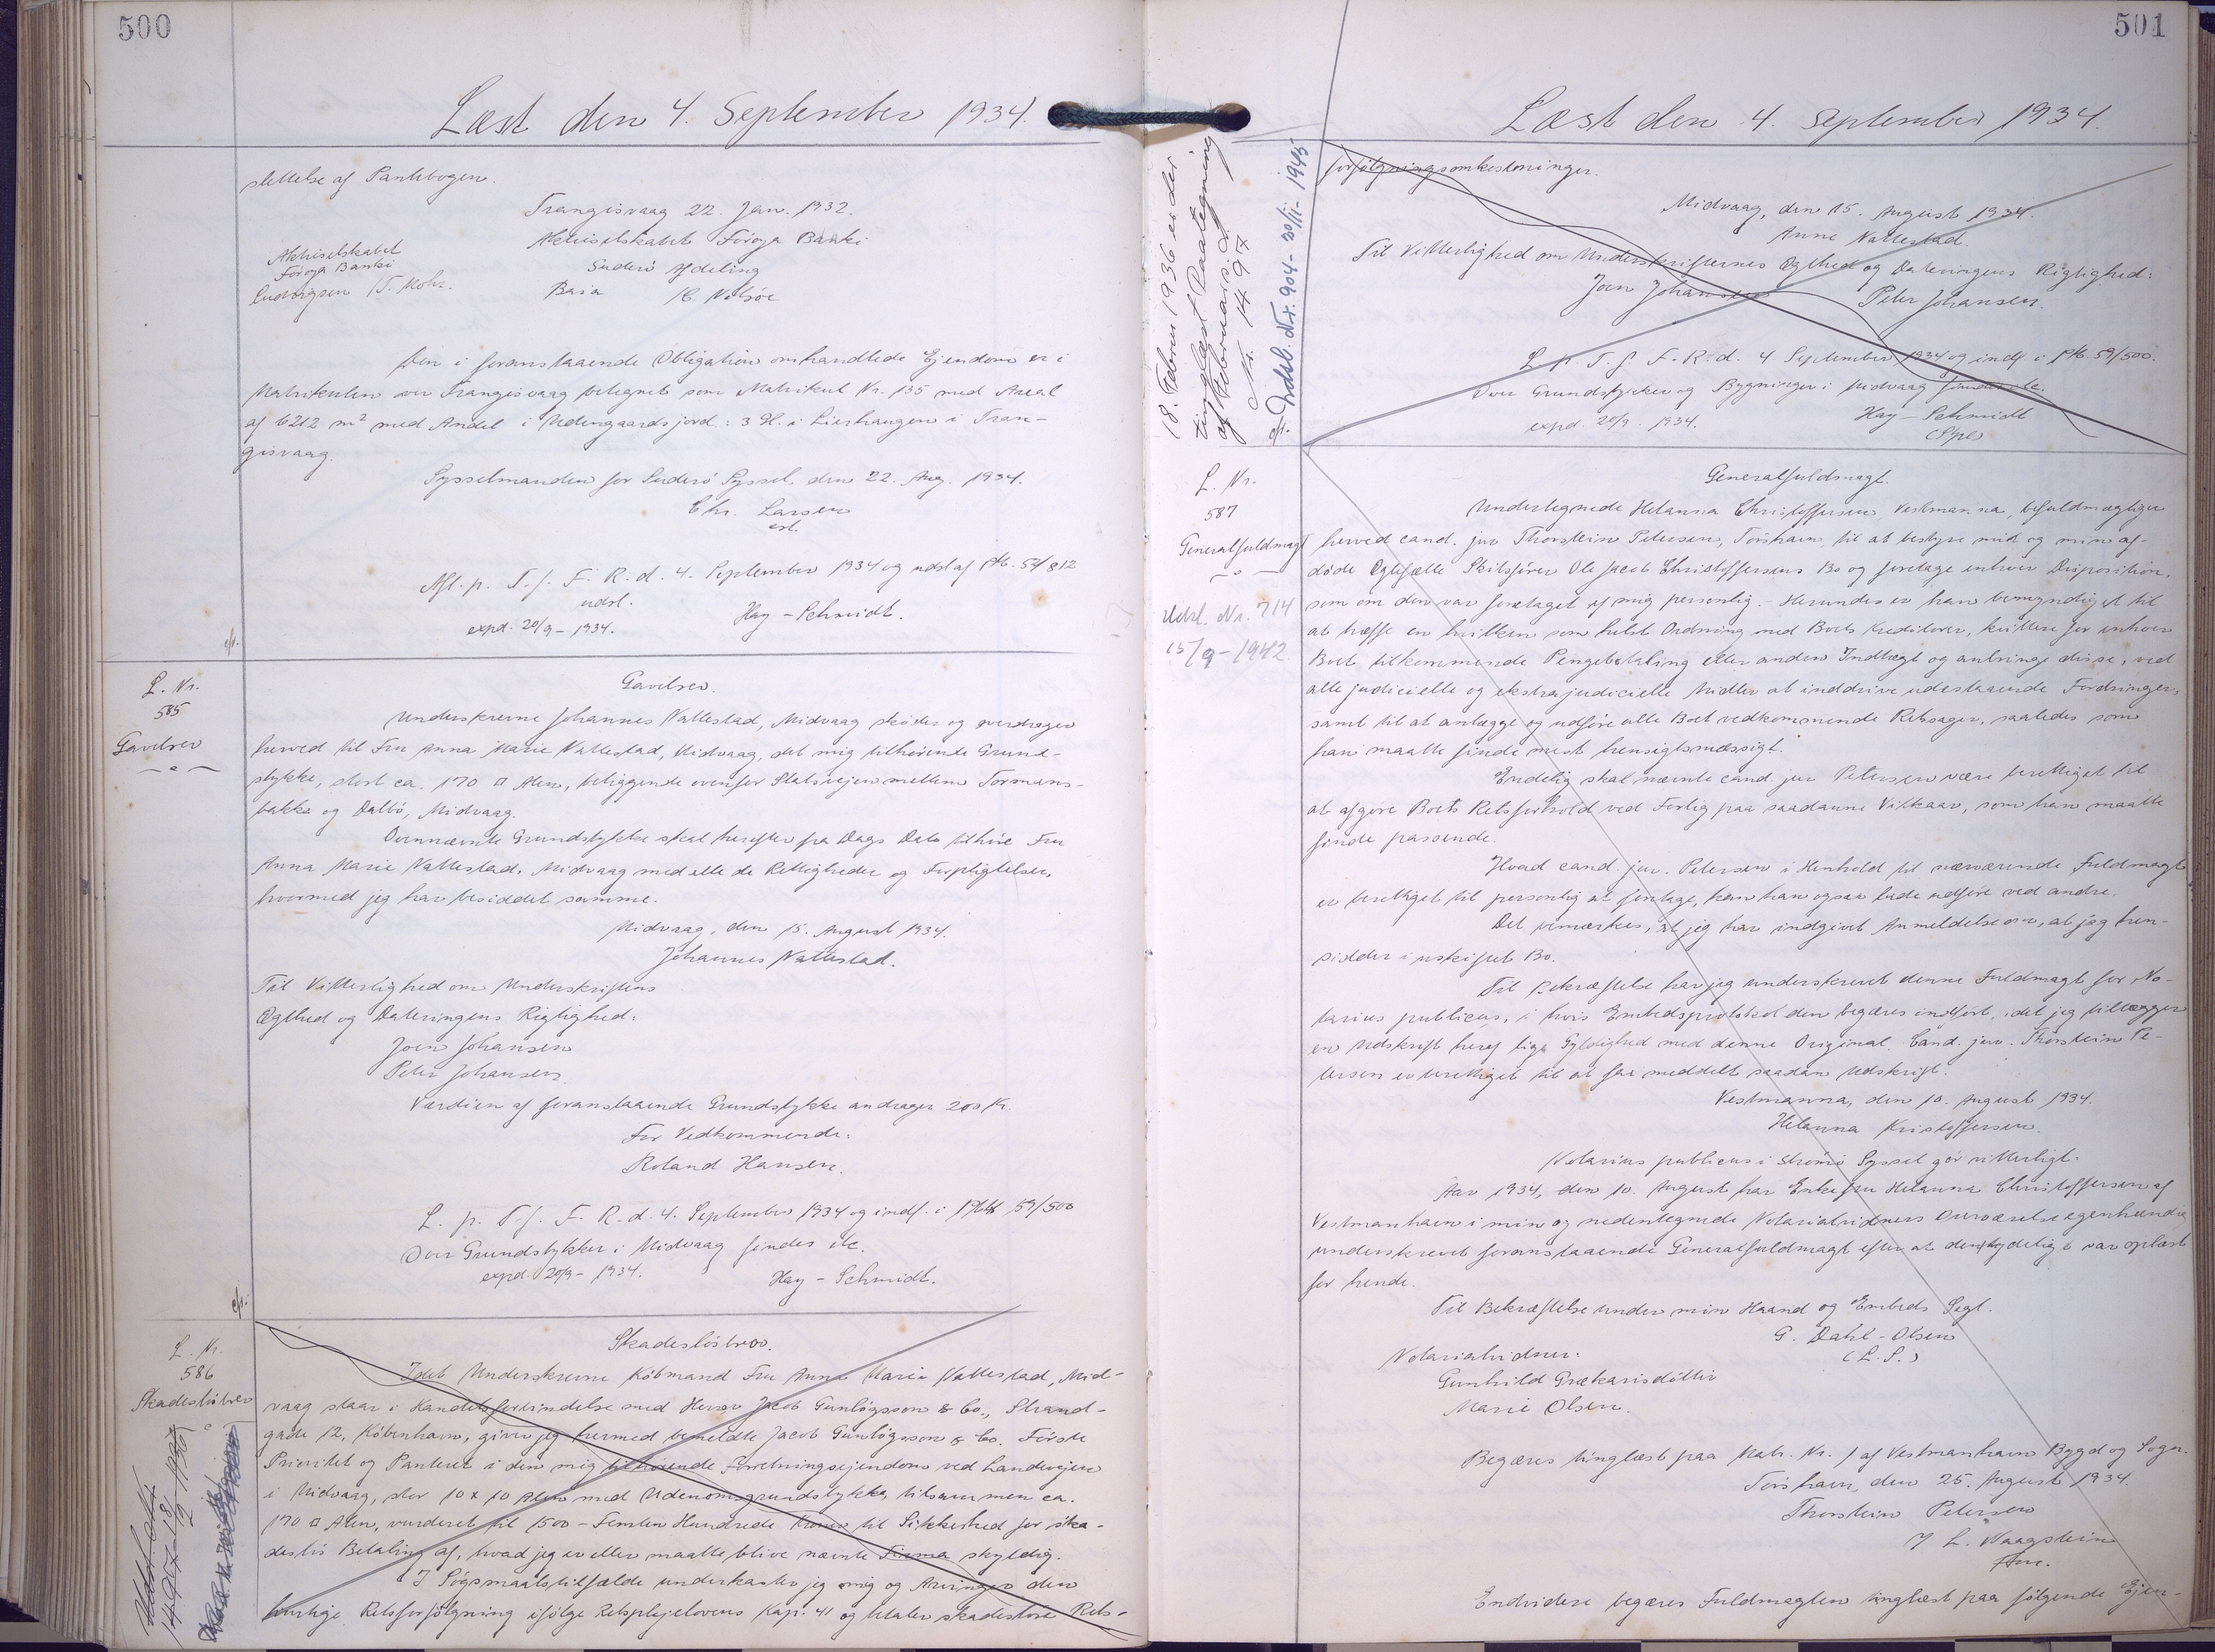 500
Læst den 4. September 1934.
slettelse af Pantebogen.
Trangisvaag 22. Jan. 1932.
Aktieselskabet Föroya Banki
Suderö Afdeling
Aktieselskabet
Föroya Banki
Ludvigsen / T. Mohr.
Den i foranstaaende Obligation omhandlede Ejendom er i
Matrikulen over Trangisvaag betegnet som Matrikul Nr. 135 med Areal
af 6212 m² med Andel i Udengaardsjord: 3 Sk. i Lierhaugen i Tran-
gisvaag.
Sysselmanden for Suderö Syssel, den 22. Aug. 1934.
Chr. Larsen
est.
Afl. p. T. f. F. R. d. 4. September 1934 og udsl af Ptb. 54/812
udsl.
expd. 20/9 - 1934.
Hay-Schmidt.
L. Nr.
585
Gavebrev
Gavebrev.
Underskrevne Johannes Vattestad, Midvaag skøder og overdrager
herved til Fru Anna Marie Vattestad, Midvaag, det mig tilhørende Grund-
stykke, stort ca. 170 □ Alen, beliggende ovenfor Statsvejen mellem Tormans-
bakke og Dalbö, Midvaag.
Ovennævnte Grundstykke skal herefter fra Dags Dato tilhöre Fru
Anna Marie Vattestad, Midvaag med alle de Rettigheder og Forpligtelser,
hvormed jeg har besiddet samme.
Midvaag, den 15. August 1934.
Johannes Vattestad.
Til Vitterlighed om Underskriftens
Ægthed og Dateringens Rigtighed:
Joen Johansen
Peter Johansen
Værdien af foranstaaende Grundstykke andrager 200 Kr.
For Vedkommende:
Roland Hansen.
L. p. T. f. F. R. d. 4. September 1934 og indf. i Ptb 59/500
Over Grundstykker i Midvaag findes ik.
expd. 20/9 - 1934.
Hay-Schmidt.
L. Nr.
586
Skadeslösbrev
Skadeslösbrev.
Idet Underskrevne Köbmand Fru Anna Marie Vattestad, Mid-
vaag staar i Handelsforbindelse med Herrer Jacob Gunlögsson & Co., Strand-
gade 12, Köbenhavn, giver jeg hermed bemeldte Jacob Gunlögsson & Co. Förste
Prioritet og Panteret i den mig tilhörende Forretningsejendom ved Landevejen
i Midvaag, stor 10 x 10 Alen med Udenomsgrundstykke, tilsammen ca.
170 □ Alen, vurderet til 1500 - Femten Hundrede Kroner til Sikkerhed for ska-
deslös Betaling af, hvad jeg er eller maatte blive nævnte Firma skyldig.
I Sögsmaalstilfælde underkaster jeg mig og Arvinger den
hurtige Retsforfölgning ifölge Retsplejelovens Kap. 41 og betaler skadeslöse Rets-
501
Læst den 4. September 1934.
forfölgningsomkostninger.
Midvaag, den 15. August 1934.
Anne Vattestad.
Til Vitterlighed om Underskrifternes Ægthed og Dateringens Rigtighed:
Joen Johansen
Peter Johansen.
L. p. T. f. F. R. d. 4 September 1934 og indf. i Ptb. 59/500.
Over Grundstykker og Bygninger i Midvaag findes ik.
expd. 20/9 - 1934.
Hay-Schmidt
18. Februar 1936 er der
tinglæst Paategning
af Februar s. A.
Nr. 1497
Udsl. Nr. 904 - 30/11 - 1945
L. Nr.
587
Generalfuldmagt
Udsl. Nr. 714
15/9 - 1942.
Generalfuldmagt.
Undertegnede Helanna Christoffersen, Vestmanna, befuldmægtiger
herved cand. jur Thorstein Petersen, Torshavn, til at bestyre mit og min af-
döde Ægtefælle Skibsförer Ole Jacob Christoffersens Bo og foretage enhver Disposition,
som om den var foretaget af mig personlig. Herunder er han bemyndiget til
at træffe en hvilken som helst Ordning med Boets Kreditorer, kvittere for enhver
Boet tilkommende Pengebetaling eller anden Indtægt og anbringe disse, ved
alle judicielle og ekstrajudicielle Midler at inddrive udestaaende Fordringer,
samt til at anlægge og udföre alle Boet vedkommende Retssager, saaledes som
han maatte finde mest hensigtsmæssigt.
Endelig skal nævnte cand. jur Petersen være berettiget til
at afgöre Boets Retsforhold ved Forlig paa saadanne Vilkaar, som han maatte
finde passende.
Hvad cand. jur. Petersen i Henhold til nærværende Fuldmagt
er berettiget til personlig at foretage, kan han ogsaa lade udföre ved andre.
Det bemærkes, at jeg har indgivet Anmeldelse om, at jeg hen-
sidder i uskiftet Bo.
Til Bekræftelse har jeg underskrevet denne Fuldmagt for No-
tarius publicus, i hvis Embedsprotokol den begæres indfört, idet jeg tillægger
en Udskrift heraf lige Gyldighed med denne Original. Cand. jur. Thorstein Pe-
tersen er berettiget til at faa meddelt saadan Udskrift.
Vestmanna, den 10. August 1934.
Helanna Kristoffersen.
Notarius publicus i Strömö Syssel gör vitterligt:
Aar 1934, den 10. August har Enkefru Helanna Christoffersen af
Vestmanhavn i min og nedentegnede Notarialvidners Overværelse egenhændig
underskrevet foranstaaende Generalfuldmagt efter at den tydeligt var oplæst
for hende.
Til Bekræftelse under min Haand og Embeds Segl.
G. Dahl-Olsen
(L. S.)
Notarialvidner:
Gunhild Prækarisdóttir
Marie Olsen.
Begæres tinglæst paa Matr. Nr. 1 af Vestmanhavn Bygd og Sogn.
Torshavn, den 25. August 1934.
Thorstein Petersen
/ L. Waagstein
Fm.
Endvidere begæres Fuldmagten tinglæst paa følgende Ejen-